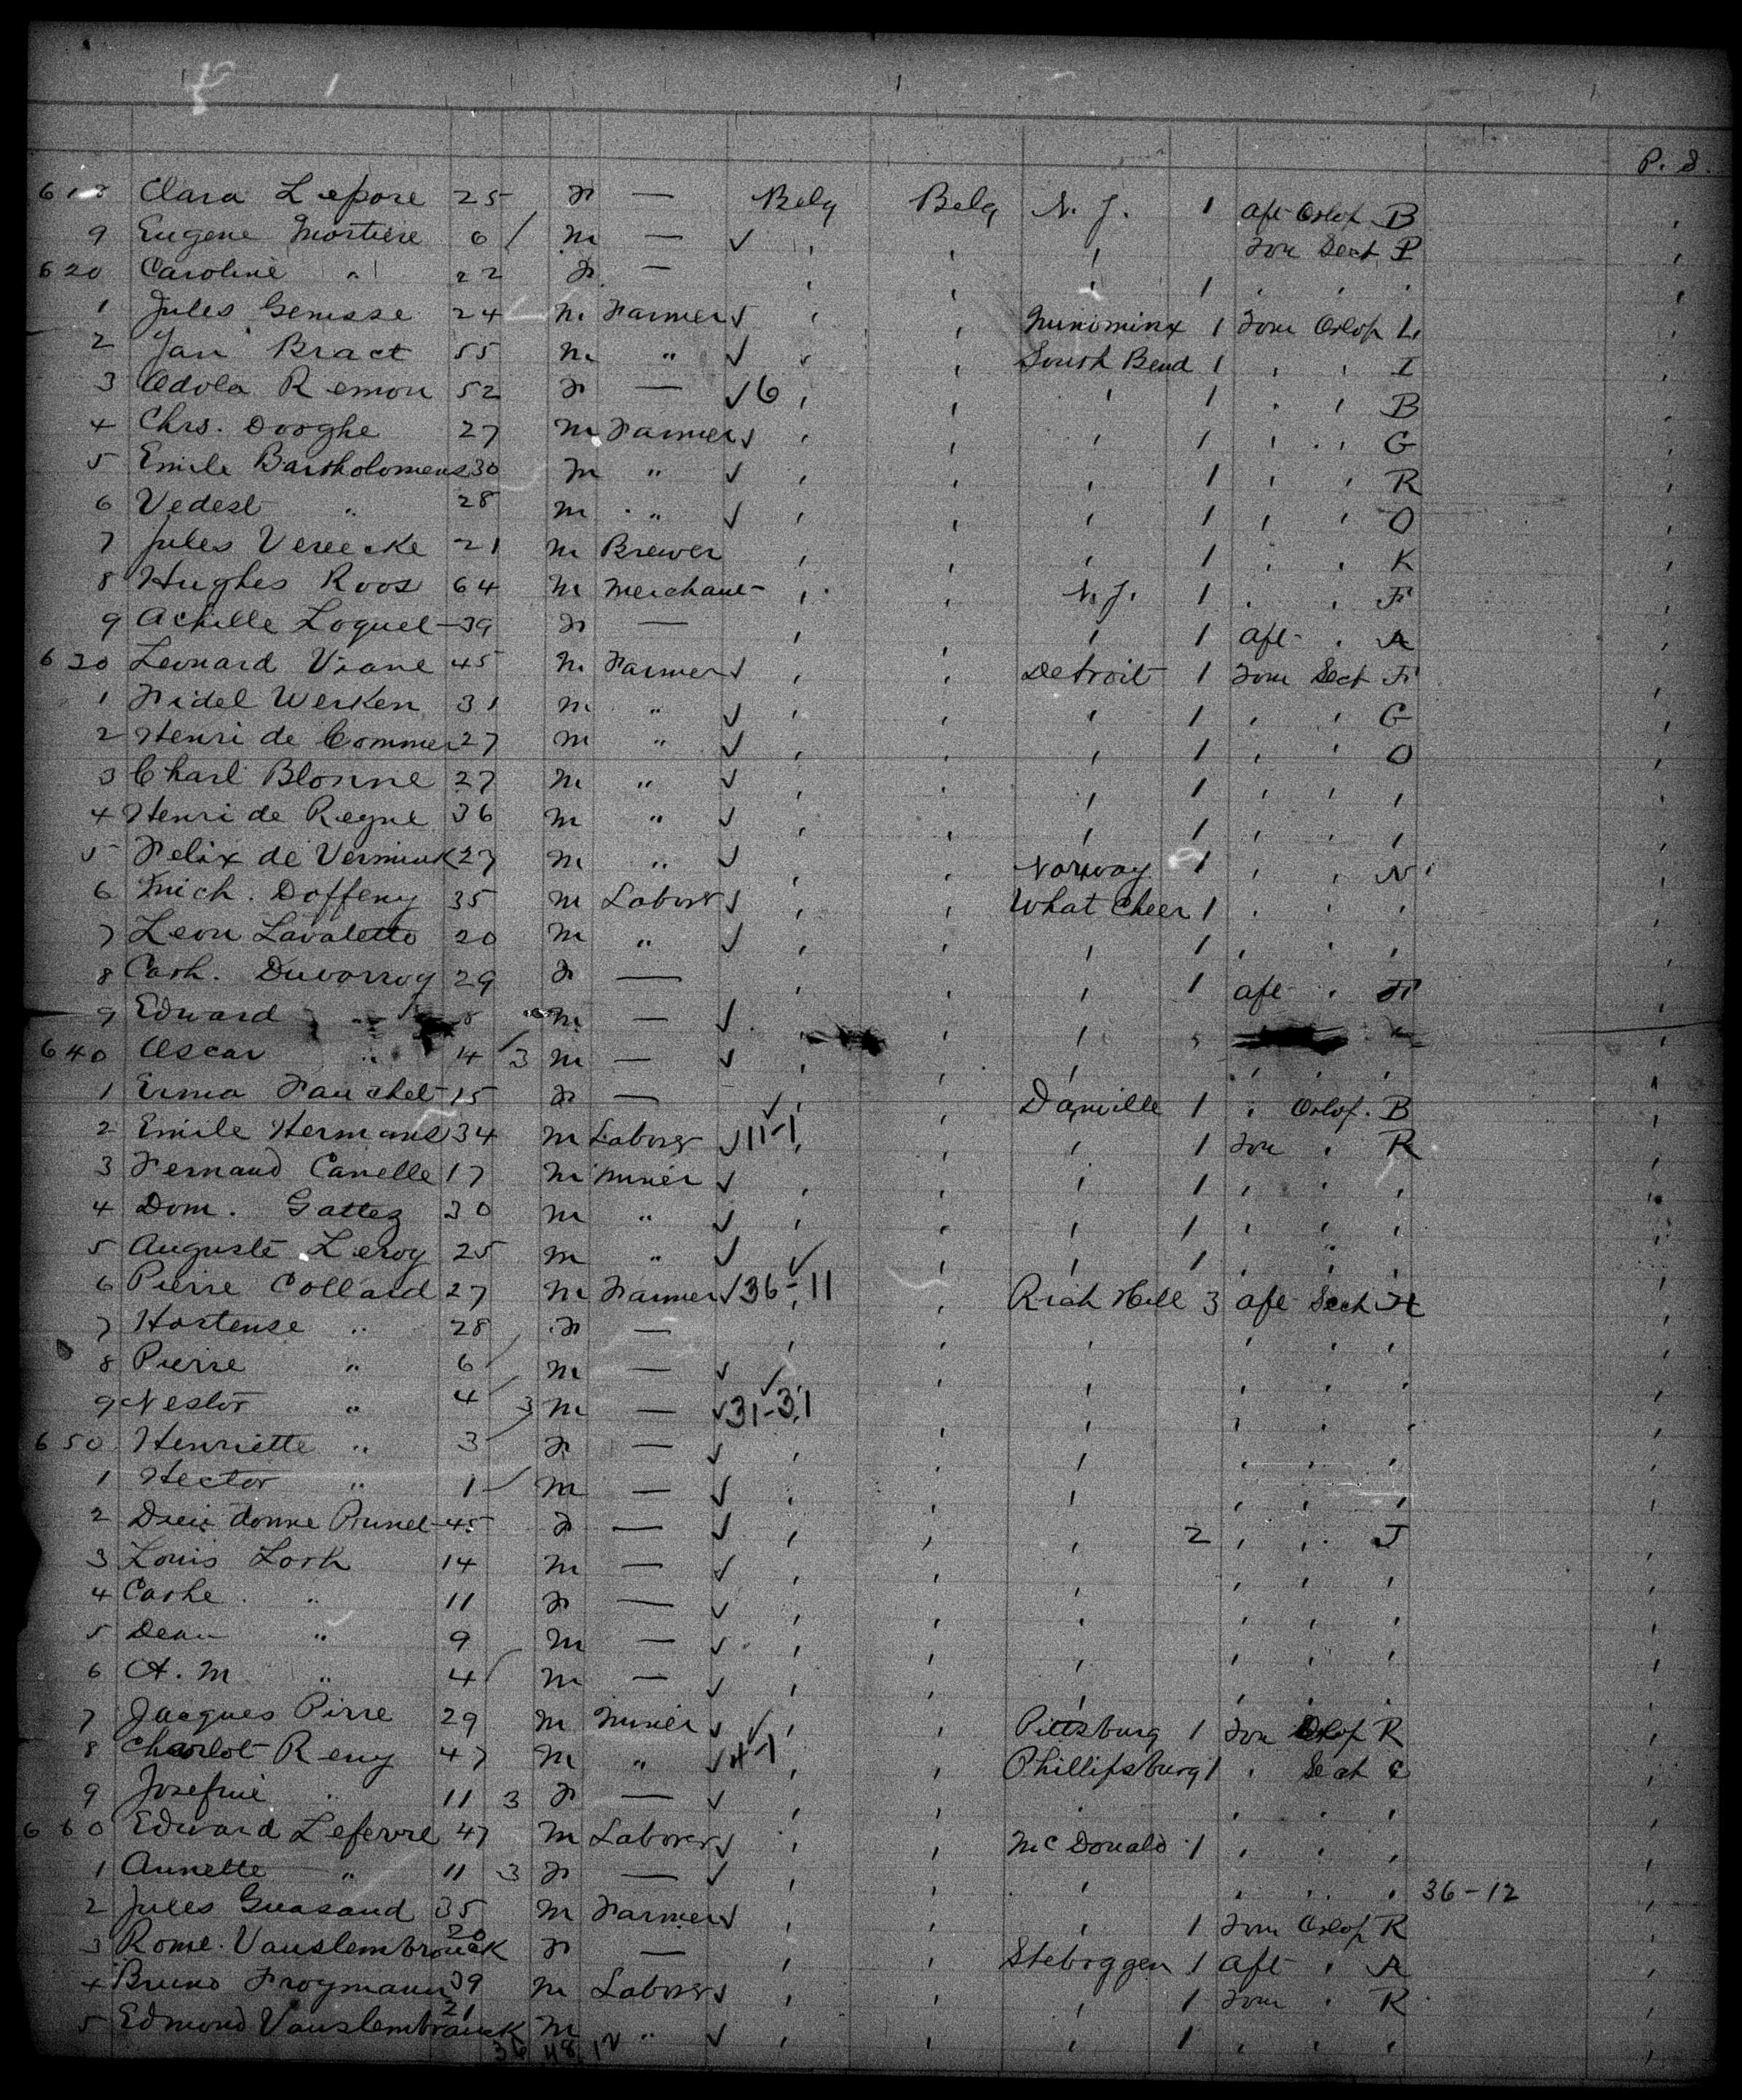 P. S.
618 Clara Lepore 25 F — Belg Belg N. J. 1 aft Orlop B
9 Eugene Mortiere 6 / m — ✓ , , , For Sect P
620 Caroline " 22 F — , , , 1 , , ,
1 Jules Genisse 24 m Farmer ✓ , , 1 For Orlop L
2 Jan Bract 55 m " ✓ , , South Bend 1 , , I
3 Adola Remon 52 F — ✓ 6 , , , 1 , , B
4 Chrs. Dooghe 27 m Farmer ✓ , , , 1 , , G
5 Emile Bartholomeus 30 m " ✓ , , , 1 , , R
6 Vedest " 28 m " ✓ , , , 1 , , O
7 Jules Vereecke 21 m Brewer , , , 1 , , K
8 Hughes Roos 64 m Merchant , , N. J. 1 , , F
9 Achille Loquet 39 F — , , , 1 aft , A
630 Leonard Viane 45 m Farmer ✓ , , Detroit 1 For Sect F
1 Fidel Werken 31 m " ✓ , , , 1 , , G
2 Henri de Commer 27 m " ✓ , , , 1 , , O
3 Charl Blonne 27 m " ✓ , , , 1 , , ,
4 Henri de Regne 36 m " ✓ , , , 1 , , ,
5 Felix de Vermiuk 27 m " ✓ , , Norway 1 , , N
6 Mich. Doffeny 35 m Laborer ✓ , , What Cheer 1 , , ,
7 Leon Lavalette 20 m " ✓ , , , 1 , , ,
8 Cath. Duvorroy 29 F — , , , 1 aft , F
9 Edward " m — ✓ , ,
640 Oscar " 4 / 3 m — ✓ , , , , , ,
1 Erma Fauchet 15 F — ✓ , , Danville 1 , Orlop. B
2 Emile Hermans 34 m Laborer ✓ 11-1 , , , 1 For , R
3 Fernand Canelle 17 m Miner ✓ , , , 1 , , ,
4 Dom. Gattez 30 m " ✓ , , , 1 , , ,
5 Auguste Leroy 25 m " ✓ ✓ , , 1 , " ,
6 Pierre Collard 27 m Farmer ✓ 36-11 , , Rich Hill 3 aft Sect H
7 Hortense " 28 F — , , , , , ,
8 Pierre " 6 / m — ✓ ✓ , , , , ,
9 Nestor " 4 / 3 m — ✓ 31-31 , , , , ,
650 Henriette " 3 / F — ✓ , , , , , ,
1 Hector " 1 / m — ✓ , , , , , ,
2 Dieu donne Prunet 45 F — ✓ , , , 2 , , J
3 Louis Loth 14 m — ✓ , , , , , ,
4 Cathe. " 11 F — ✓ , , , , , ,
5 Dean " 9 m — ✓ , , , , , ,
6 A. M " 4 / m — ✓ , , , , , ,
7 Jacques Pirre 29 m Miner ✓ ✓ , , Pittsburg 1 For Orlop R
8 Charlot Remy 47 m " ✓ , , Phillipsburg 1 , Sect C
9 Josefine " 11 3 F — ✓ , , , , , ,
660 Edward Lefevre 47 m Laborer ✓ , , McDonald 1 , , ,
1 Annette " 11 3 F — ✓ , , , , , , 36-12
2 Jules Guasaud 35 m Farmer ✓ , , , 1 For Orlop R
3 Rome. Vauslembrouck 20 F — , , Steboggen 1 aft , A
4 Bruno Froymann 39 m Laborer ✓ , , , 1 For , R
5 Edmond Vauslembrauck 21 m " ✓ , , , 1 , , ,
36 48 12